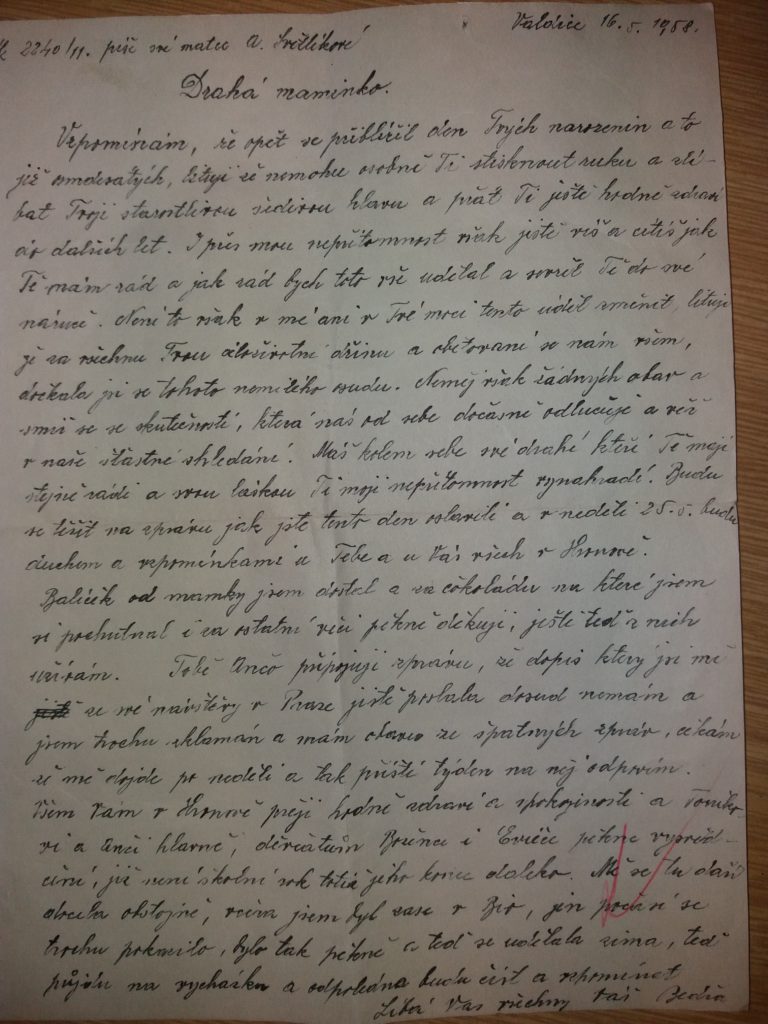 Valdice 16.5.1958.
2240/11. píše své matce A. Světlíkové
Drahá maminko.
Vzpomínám, že opět se přiblížil den Tvých narozenin a to
již osmdesátých, lituji že nemohu osobně Ti stisknout ruku a zlí-
bat Troji starostlivou šedivou hlavu a přát Ti ještě hodně zdraví
do dalších let. I přes mou nepřítomnost však jistě víš a cítíš jak
Tě mám rád a jak rád bych toto vše udělal a sevřel Tě do své
náruče. Není to však v mé ani v Tvé moci tento úděl změnit, lituji
že za všechnu Tvou celoživotní dřinu a obětování se nám všem,
dočkala jsi se tohoto nemilého osudu. Neměj však žádných obav a
smiř se se skutečností, která nás od sebe dočasně odlučuje a věř
v naše šťastné shledání. Máš kolem sebe své drahé kteří Tě mají
stejně rádi a svou láskou Ti moji nepřítomnost vynahradí. Budu
se těšit na zprávu jak jste tento den oslavili a v neděli 25.5. budu
duchem a vzpomínkami u Tebe a u Vás všech v Hronově.
Balíček od mamky jsem dostal a za čokoládu na které jsem
si pochutnal i za ostatní věci pěkně děkuji, ještě teď z nich
užívám. Tobě Ančo připojuji zprávu, že dopis který jsi mě
ze své návštěvy v Praze jistě poslala dosud nemám a
jsem trochu zklamán a mám obavu ze špatných zpráv, čekám
že mě dojde po neděli a tak příští týden na něj odpovím.
Všem Vám v Hronově přeji hodně zdraví a spokojenosti a Toníko-
vi a Anči hlavně, děvčatům Božence i Evičce pěkné vysvěd-
čení, již není školní rok totiž jeho konec daleko. Mě se tu daří
docela obstojně, včera jsem byl zase v Bio, jen počasí se
trochu pokazilo, bylo tak pěkně a teď se udělala zima, teď
půjdu na vycházku a odpoledne budu číst a vzpomínat
Líbá Vás všechny Váš